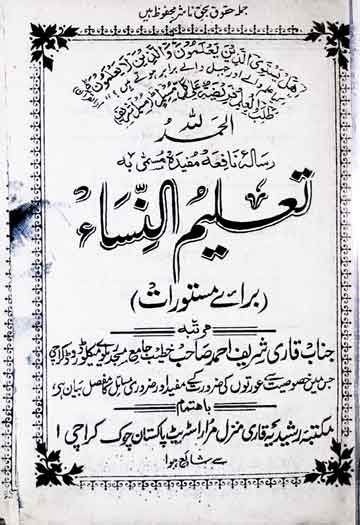 جملہ حقوق بحق ناشر محفوظ ہیں
هل يستوي الذين يعلمون والذين لا يعلمون
کیا علم والے اور جہل والے برابر ہوتے ہیں
طلب العلم فريضة على كل مسلم
الحمد للہ
رسالۂ نافعہ مفیدہ مسمٰی بہ
تعلیم النِّسَاء
(برائے مستورات)
مرتبہ
جناب قاری شریف احمد صاحب خطیب جامع مسجد ریلوے میکلوڈ روڈ کراچی
جس میں خصوصیت سے عورتوں کی ضرورت کے مفید اور ضروری مسائل کا مفصل بیان ہے
باہتمام
مکتبہ رشیدیہ قاری منزل مزار اسٹریٹ پاکستان چوک کراچی ۱
سے شائع ہوا